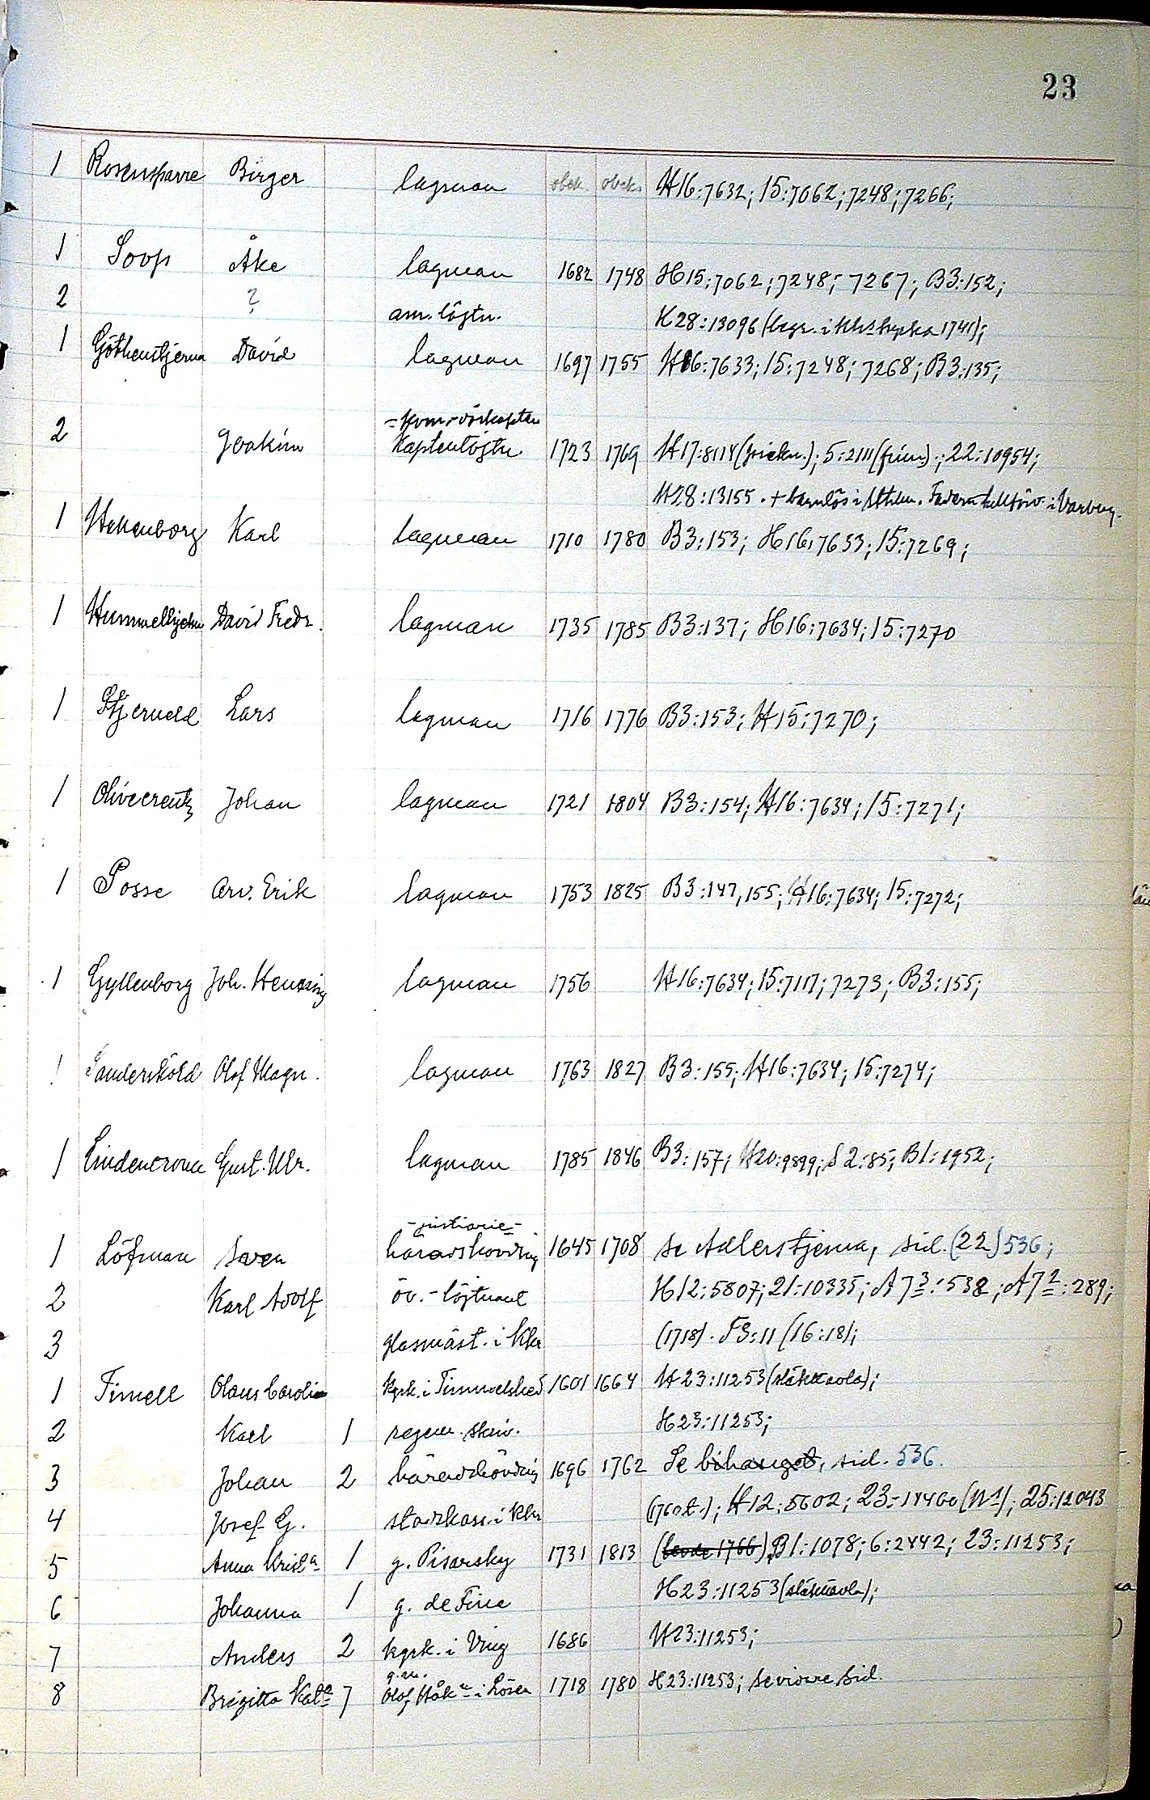 23
1 Rosensparre Birger lagman obek. obek. H16:7632; 15:7062; 7248; 7266;
1 Soop Åke lagman 1682 1748 H15:7062; 7248; 7267; B3:152;
2 ? am. löjtn. H28:13096 (begr. i 1741);
1 Göthenstjerna David lagman 1697 1755 H16:7633; 15:7248; 7268; B3:135;
2 Joakim kaptenlöjtn 1723 1769 H17:8114 ; 5:2111 ; 22:10954;
H28:13155. + barnlös i Sthlm. i Varberg.
1 Karl lagman 1710 1780 B3:153; H16:7633; 15:7269;
1 Hummelhjelm David Fredr. lagman 1735 1785 B3:137; H16:7634; 15:7270
1 Stjerneld Lars lagman 1716 1776 B3:153; H15:7270;
1 Olivecreutz Johan lagman 1721 1804 B3:154; H16:7634; 15:7271;
1 Posse Arv. Erik lagman 1753 1825 B3:147, 155; H16:7634; 15:7272;
1 Gyllenborg Joh. Henning lagman 1756 H16:7634; 15:7117; 7273; B3:155;
1 Sandersköld Olof Magn. lagman 1763 1827 B3:155; H16:7634; 15:7274;
1 Lindencrona Gust. Ulr. lagman 1785 1846 B3:157; H20:9899; S2:85; B1:1952;
-justiarie-
1 Löfman Sven häradshövding 1645 1708 se Adlerstjerna, sid. (22) 536;
2 Karl Adolf öv.-löjtnant H12:5807; 21:10335; A7 3:532; A7 2:289;
3 glasmäst. i Kkr (1718). F3:11 (16:18);
1 Timell Olaus Caroli kyrk. i Timmelshed 1601 1664 H23:11253 (släkttavla);
2 Karl 1 regem. skriv. H23:11253;
3 Johan 2 häradshövding 1696 1762 Se bihanget, sid. 536.
4 Josef G. stadskass. i Kkr (1760t.); H12:5602; 23:14460 (N1); 25:12043
5 Anna Krist:a 1 g. Pisarsky 1731 1813 (levde 1766) B1:1078; 6:2442; 23:11253;
6 Johanna 1 g. de Fine H23:11253 (släkttavla);
7 Anders 2 kyrk. i Ving 1686 H23:11253;
g.m.
8 Brigitta Kat:a 7 Olof Håk:n i Lösen 1718 1780 H23:11253; se vidare sid.